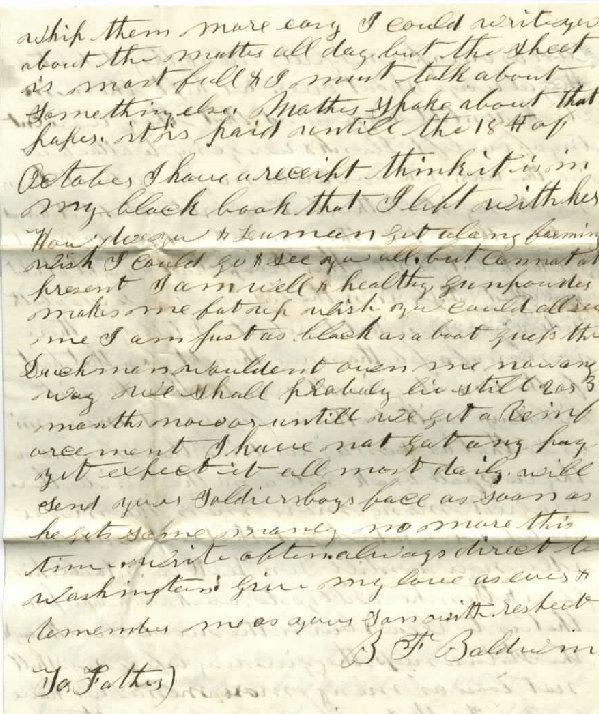 whip them more easy I could write you
about the matter all day but the sheet
is most full & I must talk about
something else. Mother spoke about that
paper. it is paid untill the 18th of
October I have a receipt think it is in
my black book that I left with her
How do you & get along farming
wish I could go & see you all. but cannot at
present I am well & healthy gunpowder
makes me fat up wish you could all see
me I am just as black as a boot guess the
Duchmen wouldent own me now any
way We shall probely lie still 2 or 3
months now or untill we get a Reinf
orcement I have not got any pay
yet expect it all most daily. will
send your Soldiersboys face as soon as
he gets some money no more this
time write often always direct to
Washington Give my love as ever &
remember me as your Son with respect
B F Baldwin
To Father)